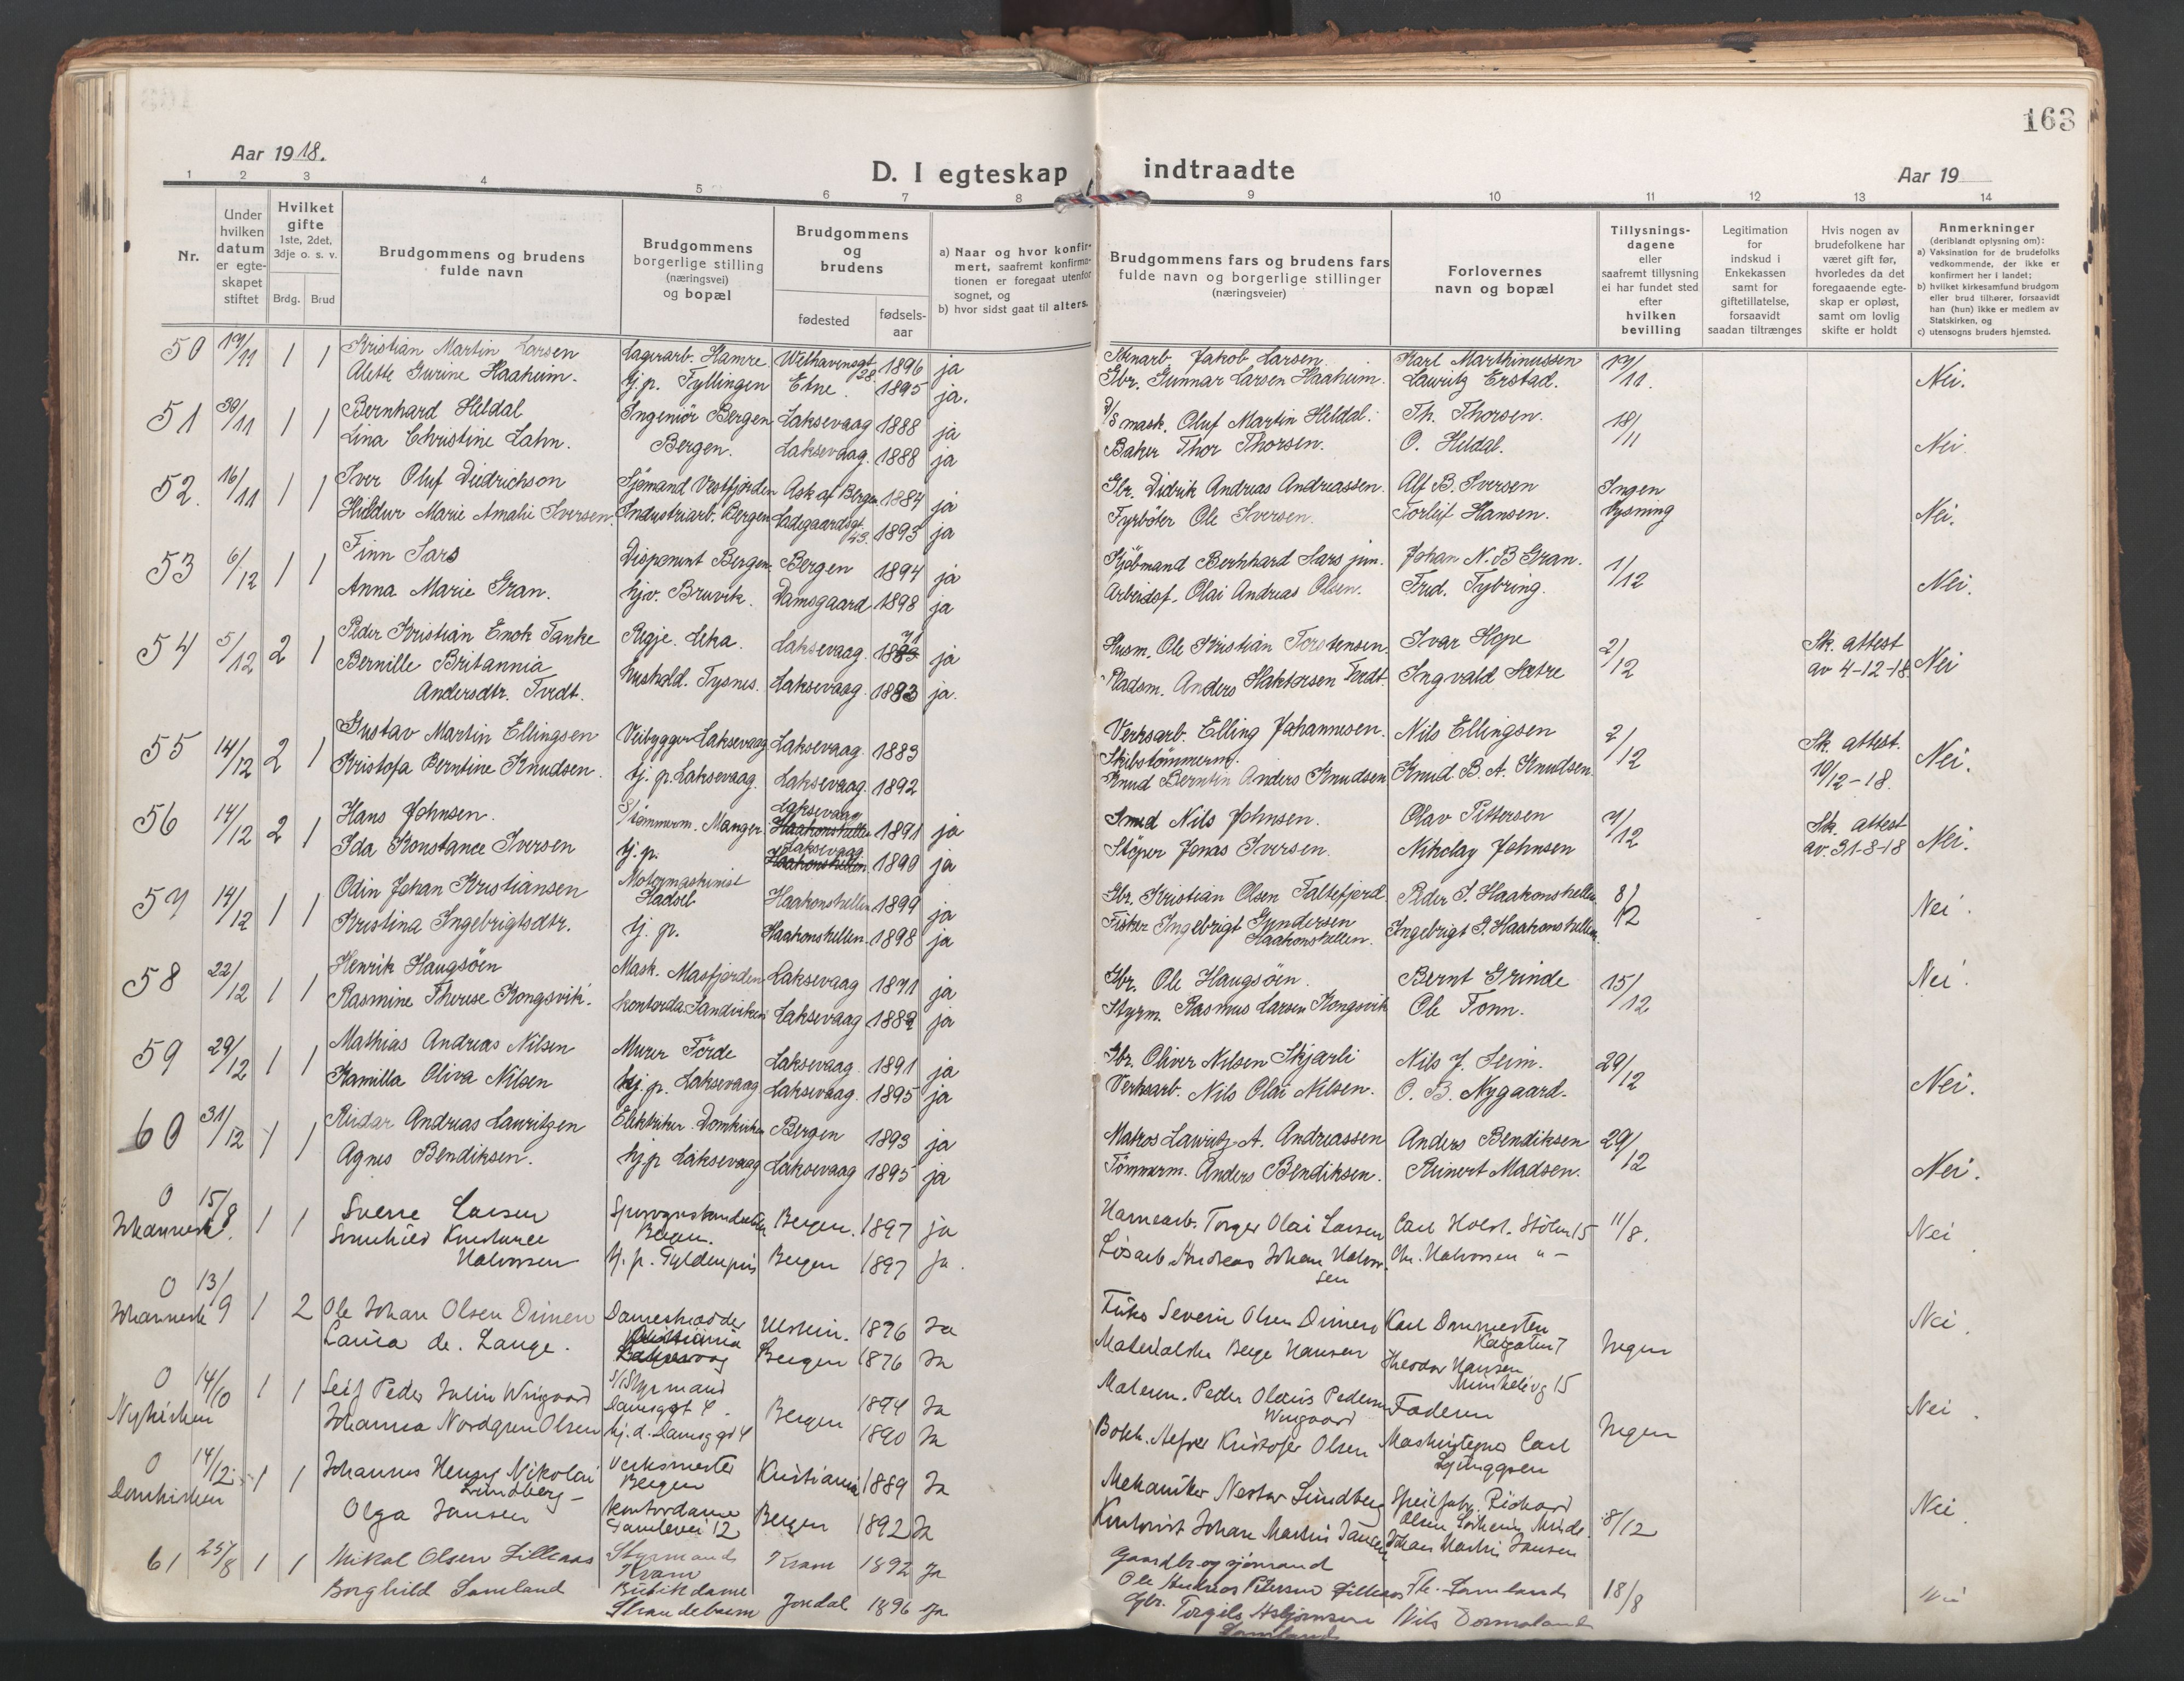 163
Aar 1918.
D. I egteskap indtraadte
Aar 19
1 2 3 4 5 6 7 8 9 10 11 12 13 14
Nr.
Under hvilken datum er egteskapet stiftet
Hvilket gifte 1ste, 2det, 3dje o. s. v.
Brdg. Brud
Brudgommens og brudens fulde navn
Brudgommens borgerlige stilling (næringsvei) og bopæl
Brudgommens og brudens
fødested
fødselsaar
a) Naar og hvor konfirmert, saafremt konfirmationen er foregaat utenfor sognet, og
b) hvor sidst gaat til alters.
Brudgommens fars og brudens fars fulde navn og borgerlige stillinger (næringsveier)
Forlovernes navn og bopæl
Tillysningsdagene eller saafremt tillysning ei har fundet sted efter hvilken bevilling
Legitimation for indskud i Enkekassen samt for giftetillatelse, forsaavidt saadan tiltrænges
Hvis nogen av brudefolkene har været gift før, hvorledes da det foregaaende egteskap er opløst, samt om lovlig skifte er holdt
Anmerkninger (deriblandt oplysning om):
a) Vaksination de brudefolks vedkommende, der ikke er konfirmert her i landet;
b) hvilket kirkesamfund brudgom eller brud tilhører, forsaavidt han (hun) ikke er medlem av Statskirken, og
c) utensogns bruders hjemsted.
50 1 1 Kristian Martin Larsen Lagerarb. Hamre Welhavensgt 28. 1896 ja Jakob Larsen Karl Marthinussen
Alette Gurine Haaheim. hj. p. Tyllingen Etne. 1895 ja. Gbr. Gunnar Larsen Haaheim. Lauritz Erstad. Nei.
51 30/11 1 1 Bernhard Heldal Ingeniör Bergen Laksevaag 1888 ja mask. Oluf Martin Heldal. Th. Thorsen. 18/11
Lina Christine Lahn. Bergen. Laksevaag. 1888 ja Baker Thor Thorsen. O. Heldal. Nei.
52. 16/11 1 1 Iver Oluf Diedrichson Sjömand Vestfjorden Ask af Bergen 1884 ja Gbr. Didrik Andreas Andreassen. Alf B. Iversen Ingen
Hildur Marie Amalie Iversen. Industriarb. Bergen Ladegaardsgt 43. 1893 ja Fyrböter Ole Iversen. Torleif Hansen. lysning Nei.
53 6/12 1 1 Finn Sars Disponent Bergen. Bergen 1894 ja Kjöbmand Bernhard Sars jun. Johan N. B Gran. 1/12
Anna Marie Gran. hjv. Bruvik. Damsgaard 1898 ja Arbeidsf. Olai Andreas Olsen. Fred. Tybring. Nei.
54 5/12 2 1 Peder Kristian Enok Tanke Laksevaag. ja Husm. Ole Kristian Torstensen. Ivar Hope 2/12 Sk. attest
Bernille Britannia hushold. Tysnes. Laksevaag. 1883 ja. Pladsm. Anders Haktorsen Tvedt. Ingvald Sætre av 4-12-18. Nei
Andersdtr. Tvedt.
55 14/12 2 1 Gustav Martin Ellingsen Veibygger Laksevaag Laksevaag. 1883 Verksarb. Elling Johannesen. Nils Ellingsen 2/12 Sk. attest.
Kristofa Berntine Knudsen. hj. p. Laksevaag. Laksevaag. 1892 Skibstömmerm. Knud Berntin Anders Knudsen Knud B. A. Knudsen. 10/12-18. Nei.
56 14/12 2 1 Hans Johnsen. S/tömmerm. Manger Laksevaag Haakonshellen 1891 ja Smed Nils Johnsen. Olav Pettersen Sk. attest
Ida Konstance Iversen hj. p. Laksevaag Haakonshellen 1890 ja Stöper Jonas Iversen. Nikolay Johnsen av. 31-8-18 Nei.
57 14/12 1 1 Odin Johan Kristiansen Motormaskinist Hadsel Haakonshellen 1899 ja Gbr. Kristian Olsen Peder I. Haakonshellen 8/12
Kristina Ingebrigtsdtr. hj. p. Haakonshellen. 1898 ja Fisker Ingebrigt Gundersen Haakonshellen. Ingebrigt P. Haakonshellen. Nei.
58 22/12 1 1 Henrik Haugsöen Mask. Masfjorden Laksevaag 1871 ja Gbr. Ole Haugsöen. Bernt Grinde 15/12
Rasmine Therese Kongsvik. kontorda. Sandviken Laksevaag ja Styrm. Rasmus Larsen Kongsvik Ole Tonn. Nei.
59 29/12 1 1 Mathias Andreas Nilsen Murer Förde Laksevaag. 1891 ja Gbr. Oliver Nilsen Skjærli Nils J. Seim. 29/12
Kamilla Oliva Nilsen hj. p. Laksevaag Laksevaag. 1895 ja Verksarb. Nils Olai Nilsen. O. B. Nygaard. Nei.
60 31/12 1 1 Reidar Andreas Lauritzen Elektriker. Domkirken Bergen 1893 ja Matros Lauritz A. Andreassen Anders Bendiksen 29/12
Agnes Bendiksen. hj. p Laksevaag Laksevaag 1895 ja Tömmerm. Anders Bendiksen. Reinert Madsen. Nei.
0 15/8 1 1 Sverre Larsen Bergen. Bergen. 1897 ja Torger Olai Larsen Carl Holst. Stölen 15 11/8.
Johannesk. Halvorsen hj. p. Gyldenpris Bergen 1897 ja. Løsarb. Andreas Johan Halvorsen Chr. Halvorsen " - Nei
0 13/9 1 2 Ole Johan Olsen Dameskrædder Ulstein. 1876 Ja Severin Olsen Nei.
Johannesk Laura de. Lange. Laksevaag Bergen 1876 Ja Berge Hansen Theodor Hansen 15 Ingen
0 14/10 1 1 Leif Peder Julin Wiigaard S/Styrmand Damsggt 4. Bergen 1894 Ja Peder Olaus Pedersen Wiigaard Faderen Nei.
Nykirken Johanna Nordgren Olsen hj. d. Damsggt 4 1890 Ja Kristofer Olsen Carl Ljunggren Ingen
0 14/12 1 1 Johannes Henry Nikolai Lundberg - Verksmester Bergen Kristiania 1889 Ja Mekaniker Nestor Lundberg Richard Olsen Nei.
Domkirken Olga Jansen kontordame 12 Bergen 1892 Ja Johan Martin Jansen Johan Martin Jansen 8/12
61 25/8 1 1 Mikal Olsen Lilleaas Styrmand Kvam Kvam 1892 Ja Gaardbr og sjömand Ole Andreas Petersen Lilleaas Th. Samland 18/8
Borghild Samland Butikdame Strandebarm Jondal 1896 Ja Gbr. Torgils Asbjørnsen Samland Nils Nei